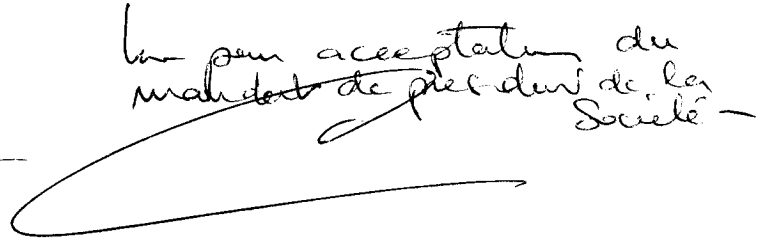 Bon pour acceptation du
mandat de président de la
Société -